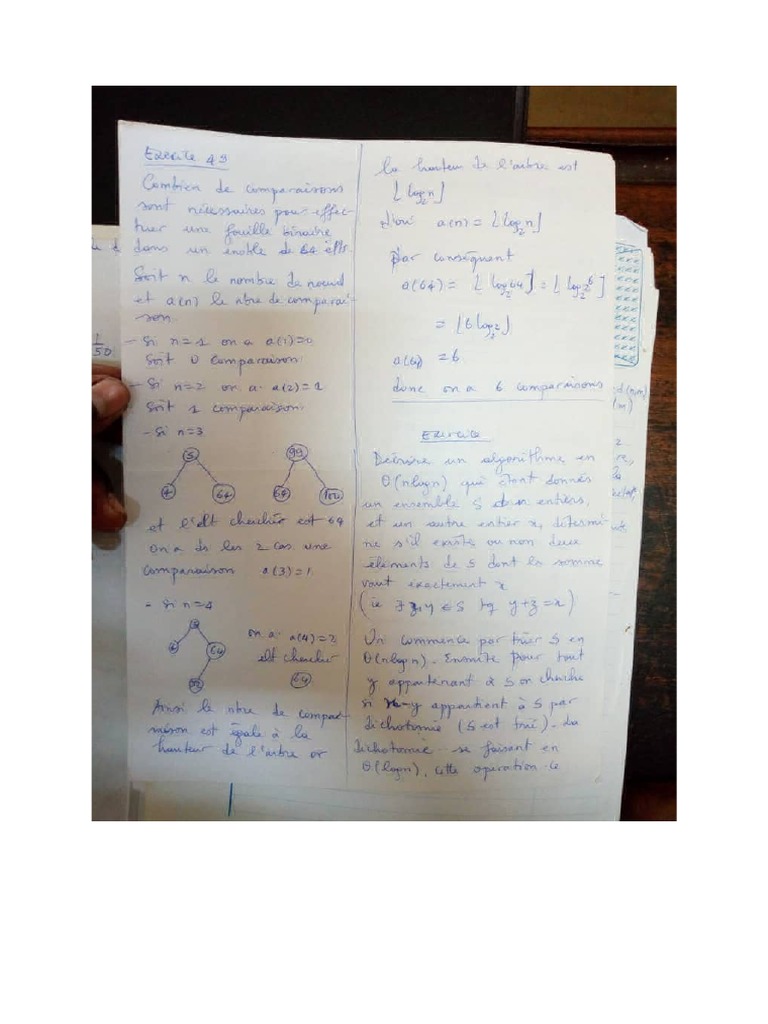 Exercice 43
Combien de comparaisons
sont nécessaires pour effec-
tuer une fouille binaire
dans un ensble de 64 élts.
Soit n le nombre de noeud
et a(n) le nbre de comparai-
son
- Si n=1 on a a(1)=0
Soit 0 comparaison.
- Si n=2 on a a(2)=1
Soit 1 comparaison.
- Si n=3
5 99
4 64 64
et l'élt cherché est 64
on a ds les 2 cas une
comparaison a(3)=1.
- si n=4
on a a(4)=2
64 élt chercher
64
Ainsi le nbre de compar-
aison est égale à la
hauteur de l'arbre or
la hauteur de l'arbre est
⌊log₂n⌋
d'où a(n) = ⌊log₂n⌋
Par conséquent
a(64) = ⌊log₂64⌋ = ⌊log₂2⁶⌋
= ⌊6 log₂2⌋
a(64) = 6
donc on a 6 comparaisons
Exercice
Décrire un algorithme en
θ(nlogn) qui étant donnés
un ensemble S de n entiers,
et un autre entier x, détermi-
ne s'il existe ou non deux
éléments de S dont la somme
vaut exactement x
(ie ∃ z,y ∈ S tq y+z=x)
On commence par trier S en
θ(nlogn). Ensuite pour tout
y appartenant à S on cherche
si x-y appartient à S par
dichotomie (S est trié). La
dichotomie se faisant en
θ(logn), cette opération ce
1/50